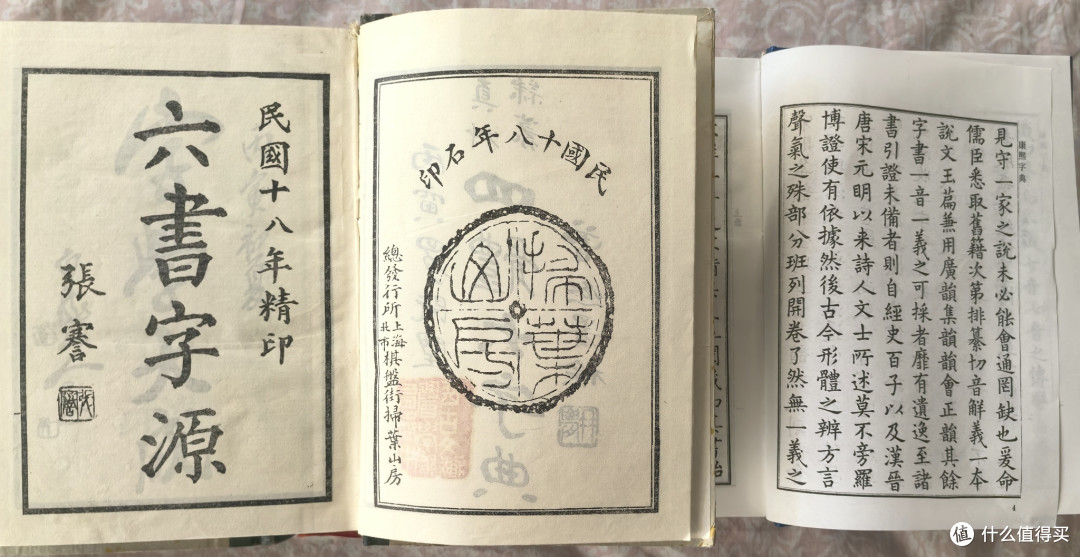 民國十八年精印
六書字源
張謇
民國十八年石印
掃葉山房
總發行所上海北市棋盤街掃葉山房
康熙字典
見守一家之說未必能會通罔缺也爰命
儒臣悉取舊籍次第排纂切音解義一本
說文玉篇兼用廣韻集韻韻會正韻其餘
字書一音一義之可採者靡有遺逸至諸
書引證未備者則自經史百子以及漢晉
唐宋元明以來詩人文士所述莫不旁羅
博證使有依據然後古今形體之辨方言
聲氣之殊部分班列開卷了然無一義之
4
值 什么值得买